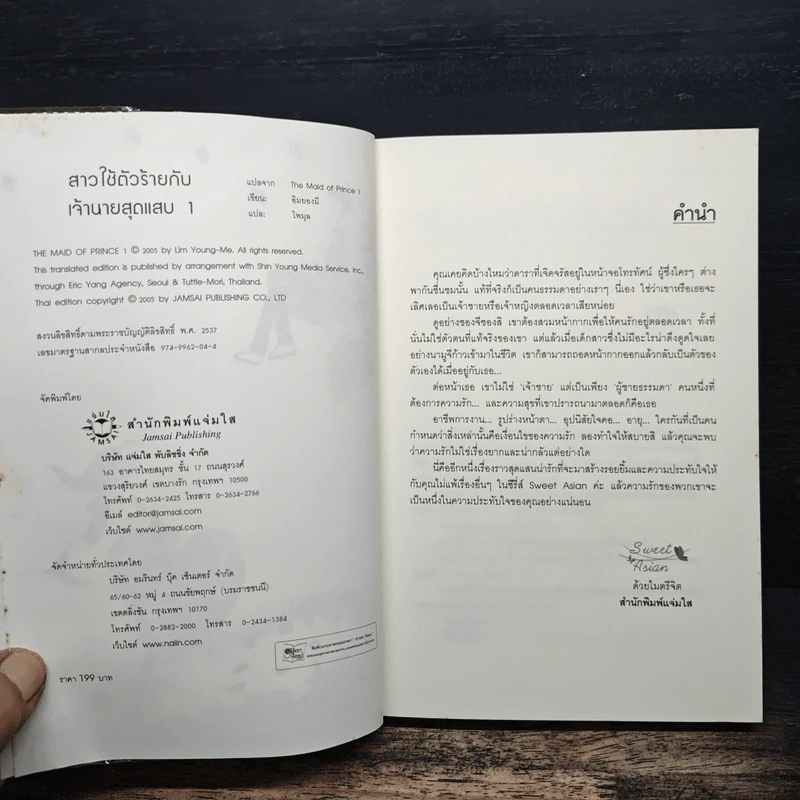 สาวใช้ตัวร้ายกับ
เจ้านายสุดแสบ 1
แปลจาก The Maid of Prince 1
เขียน: อิมยองมี
แปล: ไพมุล
THE MAID OF PRINCE 1 © 2005 by Lim Young-Me. All rights reserved.
This translated edition is published by arrangement with Shin Young Media Service, Inc.,
through Eric Yang Agency, Seoul & Tuttle-Mori, Thailand.
Thai edition copyright © 2005 by JAMSAI PUBLISHING CO., LTD
สงวนลิขสิทธิ์ตามพระราชบัญญัติลิขสิทธิ์ พ.ศ. 2537
เลขมาตรฐานสากลประจำหนังสือ 974-9962-04-4
จัดพิมพ์โดย
แจ่มใส
JAMSAI
สำนักพิมพ์แจ่มใส
Jamsai Publishing
บริษัท แจ่มใส พับลิชชิ่ง จำกัด
163 อาคารไทยสมุทร ชั้น 17 ถนนสุรวงศ์
แขวงสุริยวงศ์ เขตบางรัก กรุงเทพฯ 10500
โทรศัพท์ 0-2634-2425 โทรสาร 0-2634-2766
อีเมล์ editor@jamsai.com
เว็บไซต์ www.jamsai.com
จัดจำหน่ายทั่วประเทศโดย
บริษัท อมรินทร์ บุ๊ค เซ็นเตอร์ จำกัด
65/60-62 หมู่ 4 ถนนชัยพฤกษ์ (บรมราชชนนี)
เขตตลิ่งชัน กรุงเทพฯ 10170
โทรศัพท์ 0-2882-2000 โทรสาร 0-2434-1384
เว็บไซต์ www.naiin.com
ราคา 199 บาท
คำนำ
คุณเคยคิดบ้างไหมว่าดาราที่เจิดจรัสอยู่ในหน้าจอโทรทัศน์ ผู้ซึ่งใครๆ ต่าง
พากันชื่นชมนั้น แท้ที่จริงก็เป็นคนธรรมดาอย่างเราๆ นี่เอง ใช่ว่าเขาหรือเธอจะ
เลิศเลอเป็นเจ้าชายหรือเจ้าหญิงตลอดเวลาเสียหน่อย
ดูอย่างซองจีซองสิ เขาต้องสวมหน้ากากเพื่อให้คนรักอยู่ตลอดเวลา ทั้งที่
นั่นไม่ใช่ตัวตนที่แท้จริงของเขา แต่แล้วเมื่อเด็กสาวซึ่งไม่มีอะไรน่าดึงดูดใจเลย
อย่างนามูจีก้าวเข้ามาในชีวิต เขาก็สามารถถอดหน้ากากออกแล้วกลับเป็นตัวของ
ตัวเองได้เมื่ออยู่กับเธอ...
ต่อหน้าเธอ เขาไม่ใช่ 'เจ้าชาย' แต่เป็นเพียง 'ผู้ชายธรรมดา' คนหนึ่งที่
ต้องการความรัก... และความสุขที่เขาปรารถนามาตลอดก็คือเธอ
อาชีพการงาน... รูปร่างหน้าตา... อุปนิสัยใจคอ... อายุ... ใครกันที่เป็นคน
กำหนดว่าสิ่งเหล่านั้นคือเงื่อนไขของความรัก ลองทำใจให้สบายสิ แล้วคุณจะพบ
ว่าความรักไม่ใช่เรื่องยากและน่ากลัวแต่อย่างใด
นี่คืออีกหนึ่งเรื่องราวสุดแสนน่ารักที่จะมาสร้างรอยยิ้มและความประทับใจให้
กับคุณไม่แพ้เรื่องอื่นๆ ในซีรี่ส์ Sweet Asian ค่ะ แล้วความรักของพวกเขาจะ
เป็นหนึ่งในความประทับใจของคุณอย่างแน่นอน
Sweet
Asian
ด้วยไมตรีจิต
สำนักพิมพ์แจ่มใส